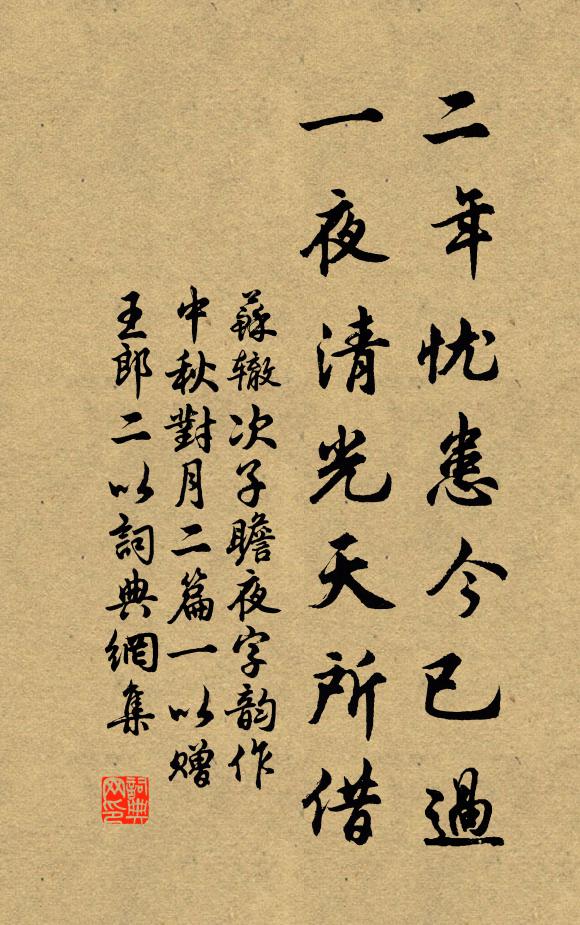 二年忧患今已過
一夜清光天所借
蘇辙次子瞻夜字韵作
中秋對月二篇一以赠
王郎二以詞典網集
詞典网印